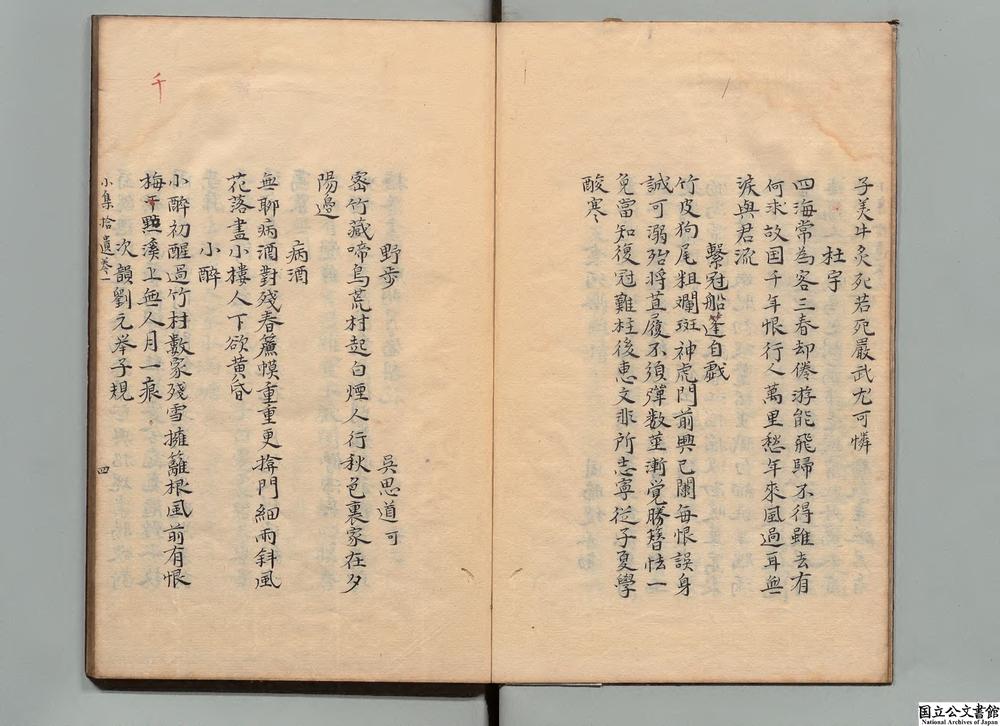 子美牛炙死若死嚴武尤可憐
杜宇
四海常為客三春却倦游能飛歸不得雖去有
何求故国千年恨行人萬里愁年來風過耳無
淚與君流
繫冠船篷自戲
竹皮狗尾粗斕斑神虎門前興已闌每恨誤身
誠可溺殆將苴履不須彈数莖漸覚勝簪怯一
免當知復冠難柱後惠文非所志寧従子夏學
酸寒
野步
吳思道可
密竹藏啼鳥荒村起白煙人行秋色裏家在夕
陽邊
病酒
無聊病酒對殘春簾幙重重更揜門細雨斜風
花落盡小樓人下欲黄昏
小醉
小醉初醒過竹村數家殘雪擁籬根風前有恨
梅千點溪上無人月一痕
次韻劉元举子規
小集拾遺卷一
四
千
国立公文書館
National Archives of Japan